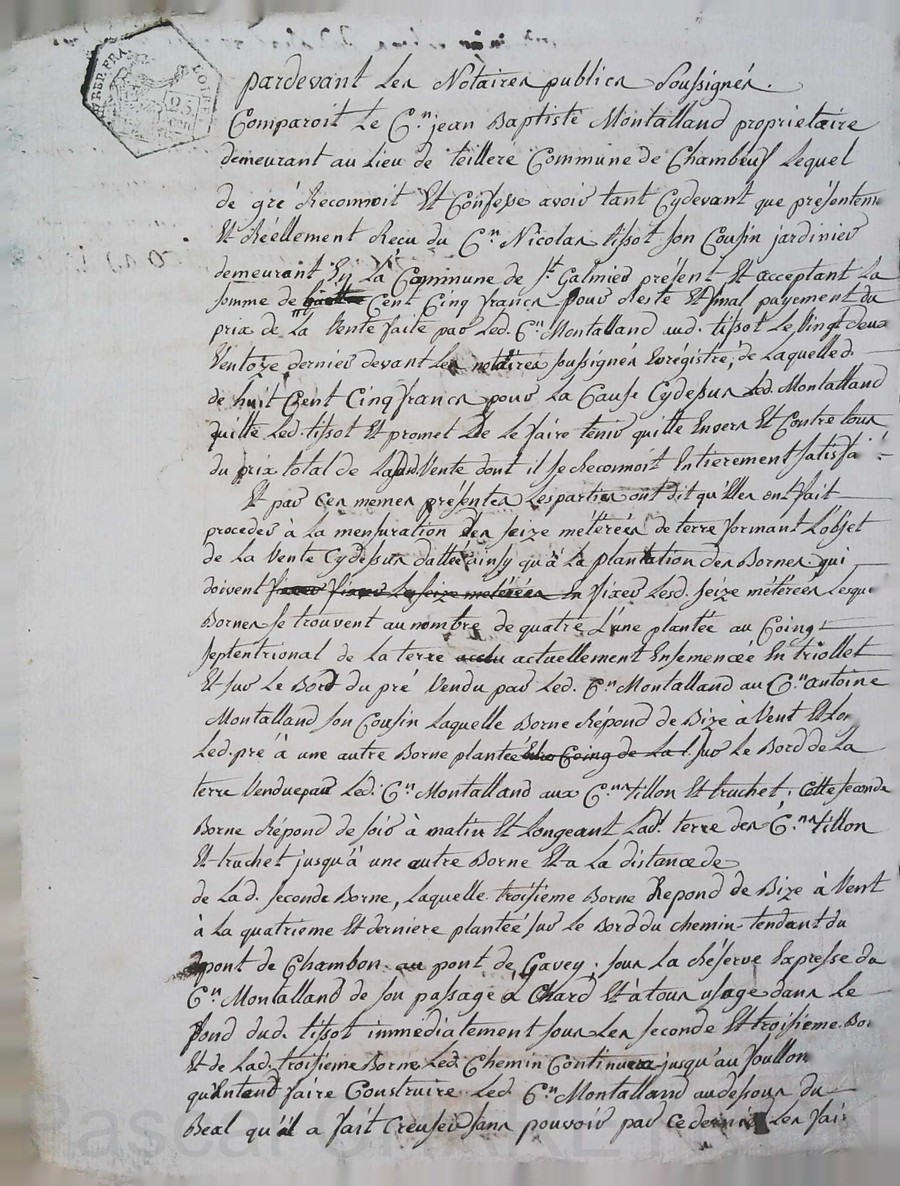 REP. FRA. LOIRE
25
pardevant Les Notaires publics Soussignés.
Comparoit Le C.en jean Baptiste Montalland proprietaire
demeurant au Lieu de teilleré Commune de Chambeuf Lequel
de gré Reconnoit Et Confesse avoir tant Cydevant que présentem
Et Réellement Recu du C.en Nicolas tissot son Cousin jardinier
demeurant En La Commune de St Galmier présent Et acceptant La
somme de Cent Cinq francs pour Reste Et final payement du
prix de La Vente faite par Led. C.en Montalland aud. tissot Le Vingt deux
Ventoze dernier devant Les notaires soussignés Enrégistré, de Laquelle d.
de huit Cent Cinq francs pour La Cause Cydessus Led. Montalland
quitte Led. tissot Et promet de Le faire tenir quitte Envers Et Contre tous
du prix total de Lad. Vente dont il se Reconnoit Entierement satisfa
Et par Ces memes présentes Les parties ont dit qu'Elles ont fait
proceder à La mensuration des seize méterées de terre formant L'objet
de La Vente Cydessus dattée ainsy qu'à La plantation des Bornes qui
doivent fixer fixer Les seize méterées En fixer Lesd. seize méterées Lesqu
Bornes se trouvent au nombre de quatre L'une plantée au Coing
septentrional de La terre actuellement Ensemencée En triollet
Et sur Le Bord du pré Vendu par Led. C.en Montalland au C.en antoine
Montalland son Cousin Laquelle Borne Répond de Bize à Vent Et Lon
Led. pré à une autre Borne plantée Coing de La sur Le Bord de La
terre Vendue par Led. C.en Montalland aux C.ens tillon Et truchet, Cette seconde
Borne Répond de soir à matin Et Longeant Lad. terre des C.ens tillon
Et truchet jusqu'à une autre Borne Et a La distance de
de Lad. seconde Borne, Laquelle troisieme Borne Repond de Bize à Vent
à La quatrieme Et derniere plantée sur Le Bord du chemin tendant du
pont de Chambon au pont de Gavey. sous La Réserve Expresse du
C.en Montalland de son passage à Chard Et à tous usage dans Le
fond dud. tissot immédiatement sous Les seconde Et troisieme Bor
Et de Lad. troisieme Borne Led. Chemin Continuera jusqu'au foullon
qu'Entend faire Construire Led. C.en Montalland audessous du
Beal qu'il a fait Creuser sans pouvoir par Ce dernier Les fair